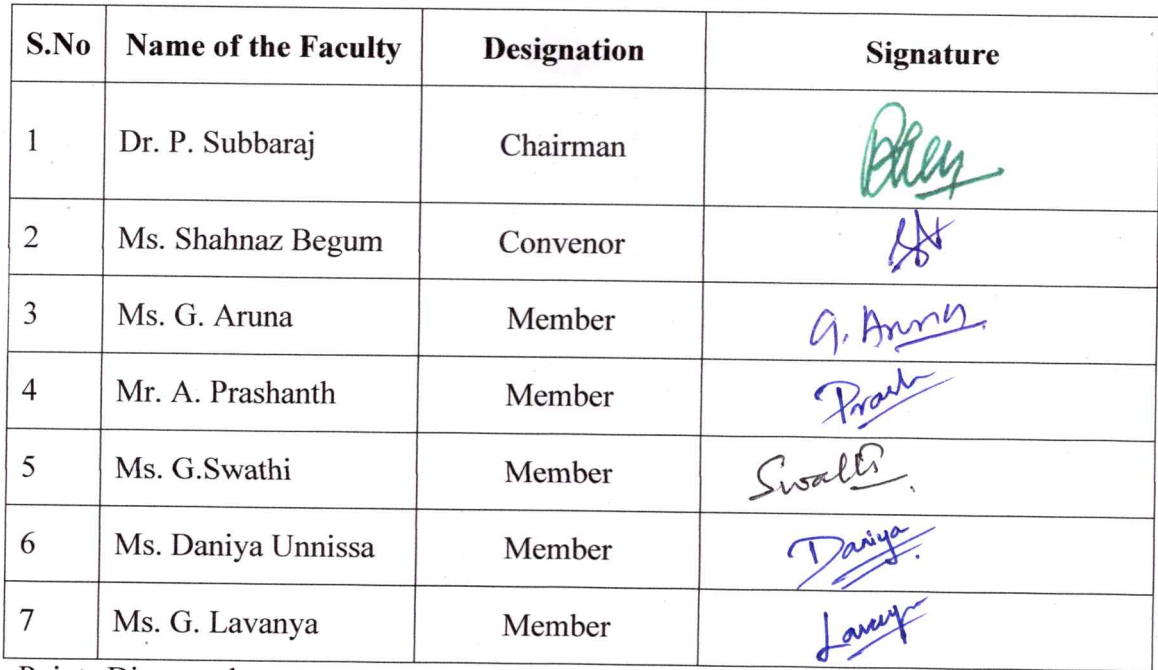 S.No Name of the Faculty Designation Signature
1 Dr. P. Subbaraj Chairman
2 Ms. Shahnaz Begum Convenor
3 Ms. G. Aruna Member G. Aruna
4 Mr. A. Prashanth Member
5 Ms. G.Swathi Member Swathi
6 Ms. Daniya Unnissa Member Daniya
7 Ms. G. Lavanya Member